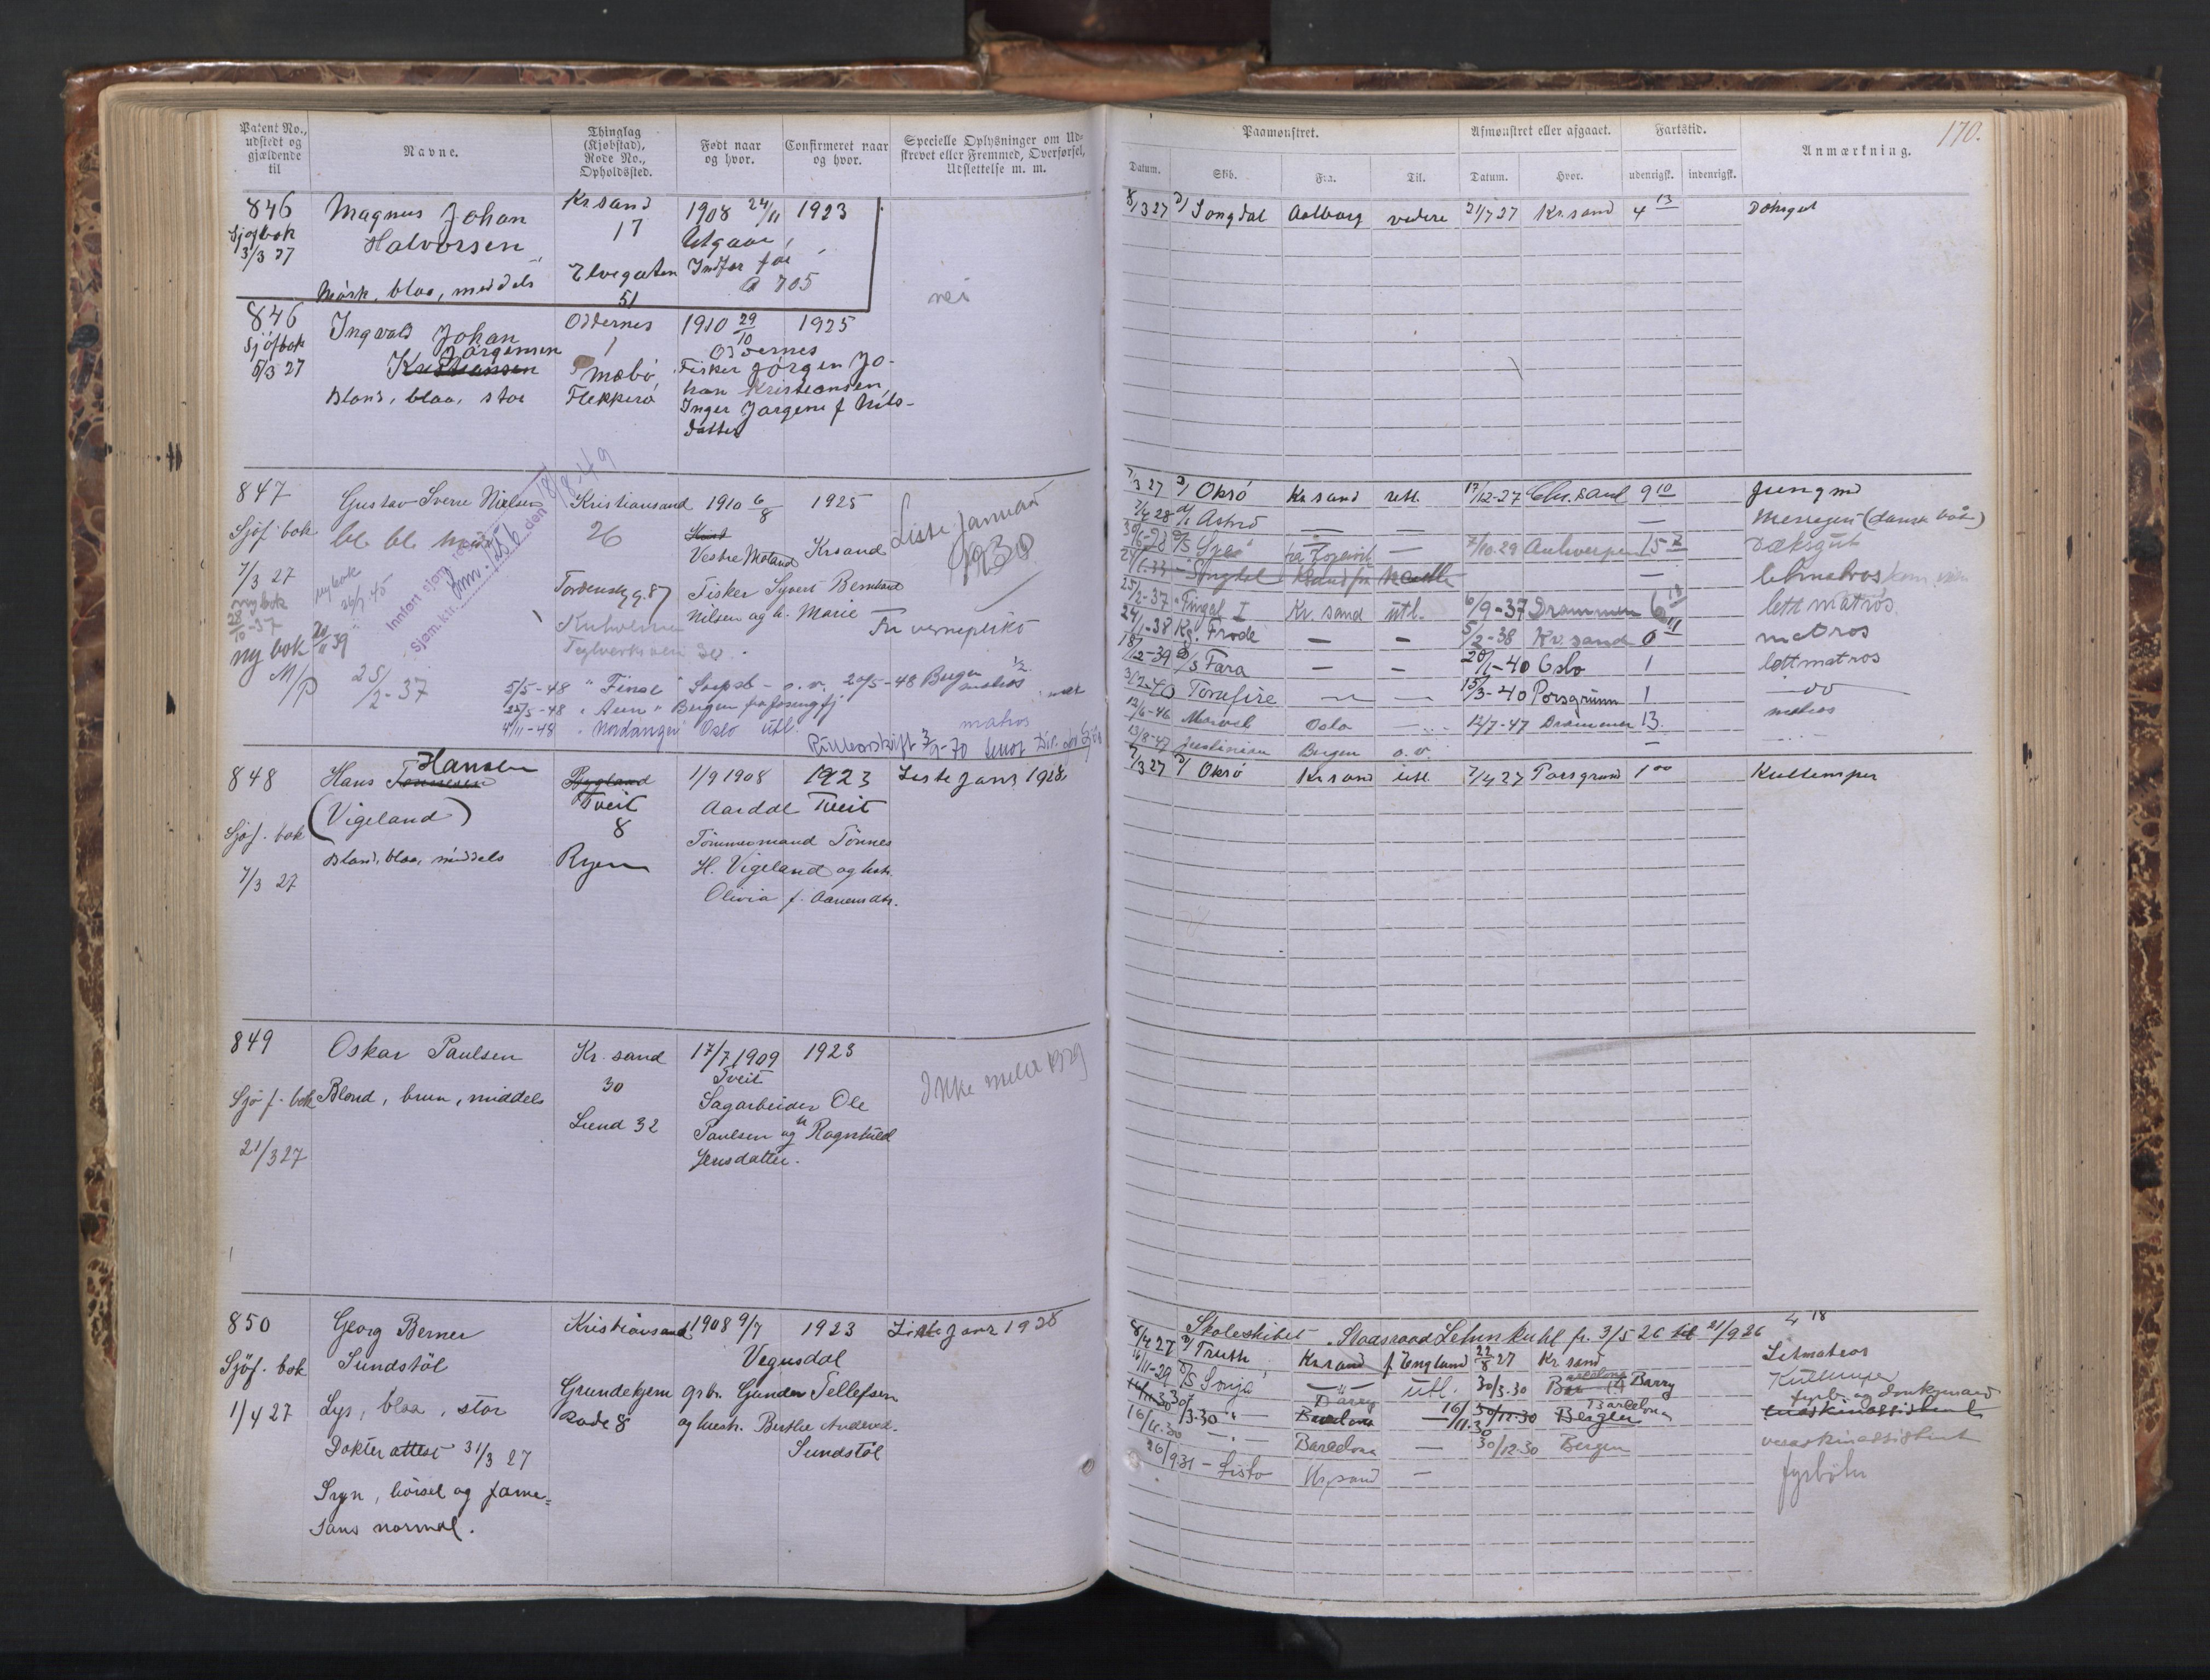 Patent No., udstedt og gjældende til
Navne.
Thinglag (Kjøbstad), Rode No., Opholdssted.
Født naar og hvor.
Confirmeret naar og hvor.
Specielle Oplysninger om Udskrevet eller Fremmed, Overførsel, Udslettelse m. m.
Paamønstret.
Datum.
Skib.
Fra.
Til.
Afmønstret eller afgaaet.
Datum.
Hvor.
Fartstid.
udenrigsk.
indenrigsk.
Anmærkning.
170.
846
Sjøfbok
3/3 27
Magnus Johan
Halvorsen
Mørk, blaa, middels
Kr sand
17
Elvegaten
51
1908 24/11 1923
Utgaar,
Indfør før
a 705
nei
8/3 27 Songdal Aalborg videre 21/7 27 Kr. sand 4 13
846
Sjöfbok
5/3 27
Ingvald Johan
Jörgensen
Kristiansen
Blond, blaa, stor
Oddernes
1
Mæbö
Flekkerö
1910 29/10 1925
Oddernes
Fisker Jörgen Jo-
han Kristiansen
Inger Jörgine f Nils-
datter
847
Sjöf. bok
7/3 27
ny bok
28/10-37
ny bok 20/11 39
M/P 25/2-37
ny bok
26/9 45
Gustav Sverre Nielsen
bl. bl. mid
Innlem sjøm
Sjøm. ktr.
den 8/8-49
Kristiansand
26
Tordenskj.g. 87
Kuholmen
Teglverksvei 30.
1910 6/8 1925
Vestre Moland Krsand
Fisker Syvert Bernhard
Nilsen og h. Marie
Liste Januar
1930
Fri verneplikt
5/5-48 " Finse " - o. v. 20/5-48 Bergen matros
25/5-48 " " Bergen
4/11-48 " Nordanger Oslo utl. matros
7/3 27 Oksö Kr sand utl. 17/12-27 Chr. sand 9 10 jungmd
7/4 28 Aströ — — Messegut (dansk båt)
7/10-29 Antwerpen 15 Dæksgut
Songdal
letmatros
25/2-37 Fingal I Kr. sand utl. 6/9-37 Drammen 6 lettmatros
24/1-38 Kg. Frode — — 5/2-38 Kr. sand 0 11 matros
18/12-39 D/S Fara — — 20/1-40 Oslo 1 lettmatros
3/2-40 Torafire — — 15/3-40 Porsgrunn 1 — do —
12/6-46 Oslo — 12/7-47 Drammen 13 matros
13/8-47 Justinian Bergen o. v. —
848
Sjöf. bok
7/3 27
Hansen
Hans Tönnesen
(Vigeland)
Blond, blaa, middels
Bygland
Tveit
8
Ryen
1/9 1908 1923
Aardal Tveit
Tömmermand Tönnes
H. Vigeland og hstr.
Olivia f. Aanensdtr.
Liste Janr 1928
7/3 27 Oksö Kr sand utl 7/4 27 Porsgrund 1 00 Kullemper
849
Sjö f. bok
21/3 27
Oskar Paulsen
Blond, brun, middels
Kr. sand
30
Lund 32
17/7 1909 1923
Tveit
Sagarbeider Ole
Paulsen og h Ragnhild
Jensdatter.
Ikke meldt 1929
850
Sjöf. bok
1/4 27
Georg Berner
Sundstöl
Lys, blaa, stor
Dokter attest 31/3 27
Syn, hörsel og farve=
sans normal.
Kristiansand
Grundekjern
Rode 8
1908 9/7 1923
Vegusdal
grbr. Gunder Tellefsen
og hustr. Berthe Andersd.
Sundstöl
Liste Janr 1928
Skoleskibet Statsraad Lehmkuhl fr. 3/5 26 til 21/9 26 4 18
8/4 27 Truth Kr.sand f. England 22/8 27 Kr sand Letmatros
16/11-29 D/S Sonja — " — utl. 30/3-30 Barry Kullemper
30/3-30 — " — Barry — 16/11.30 Barcelona fyrb. og donkeymand
30/12-30 Bergen maskinassistent
16/11.30 — " — Barcelona — 30/12-30 Bergen maskinassistent
26/9 31 - Lista Kr. sand — fyrböter